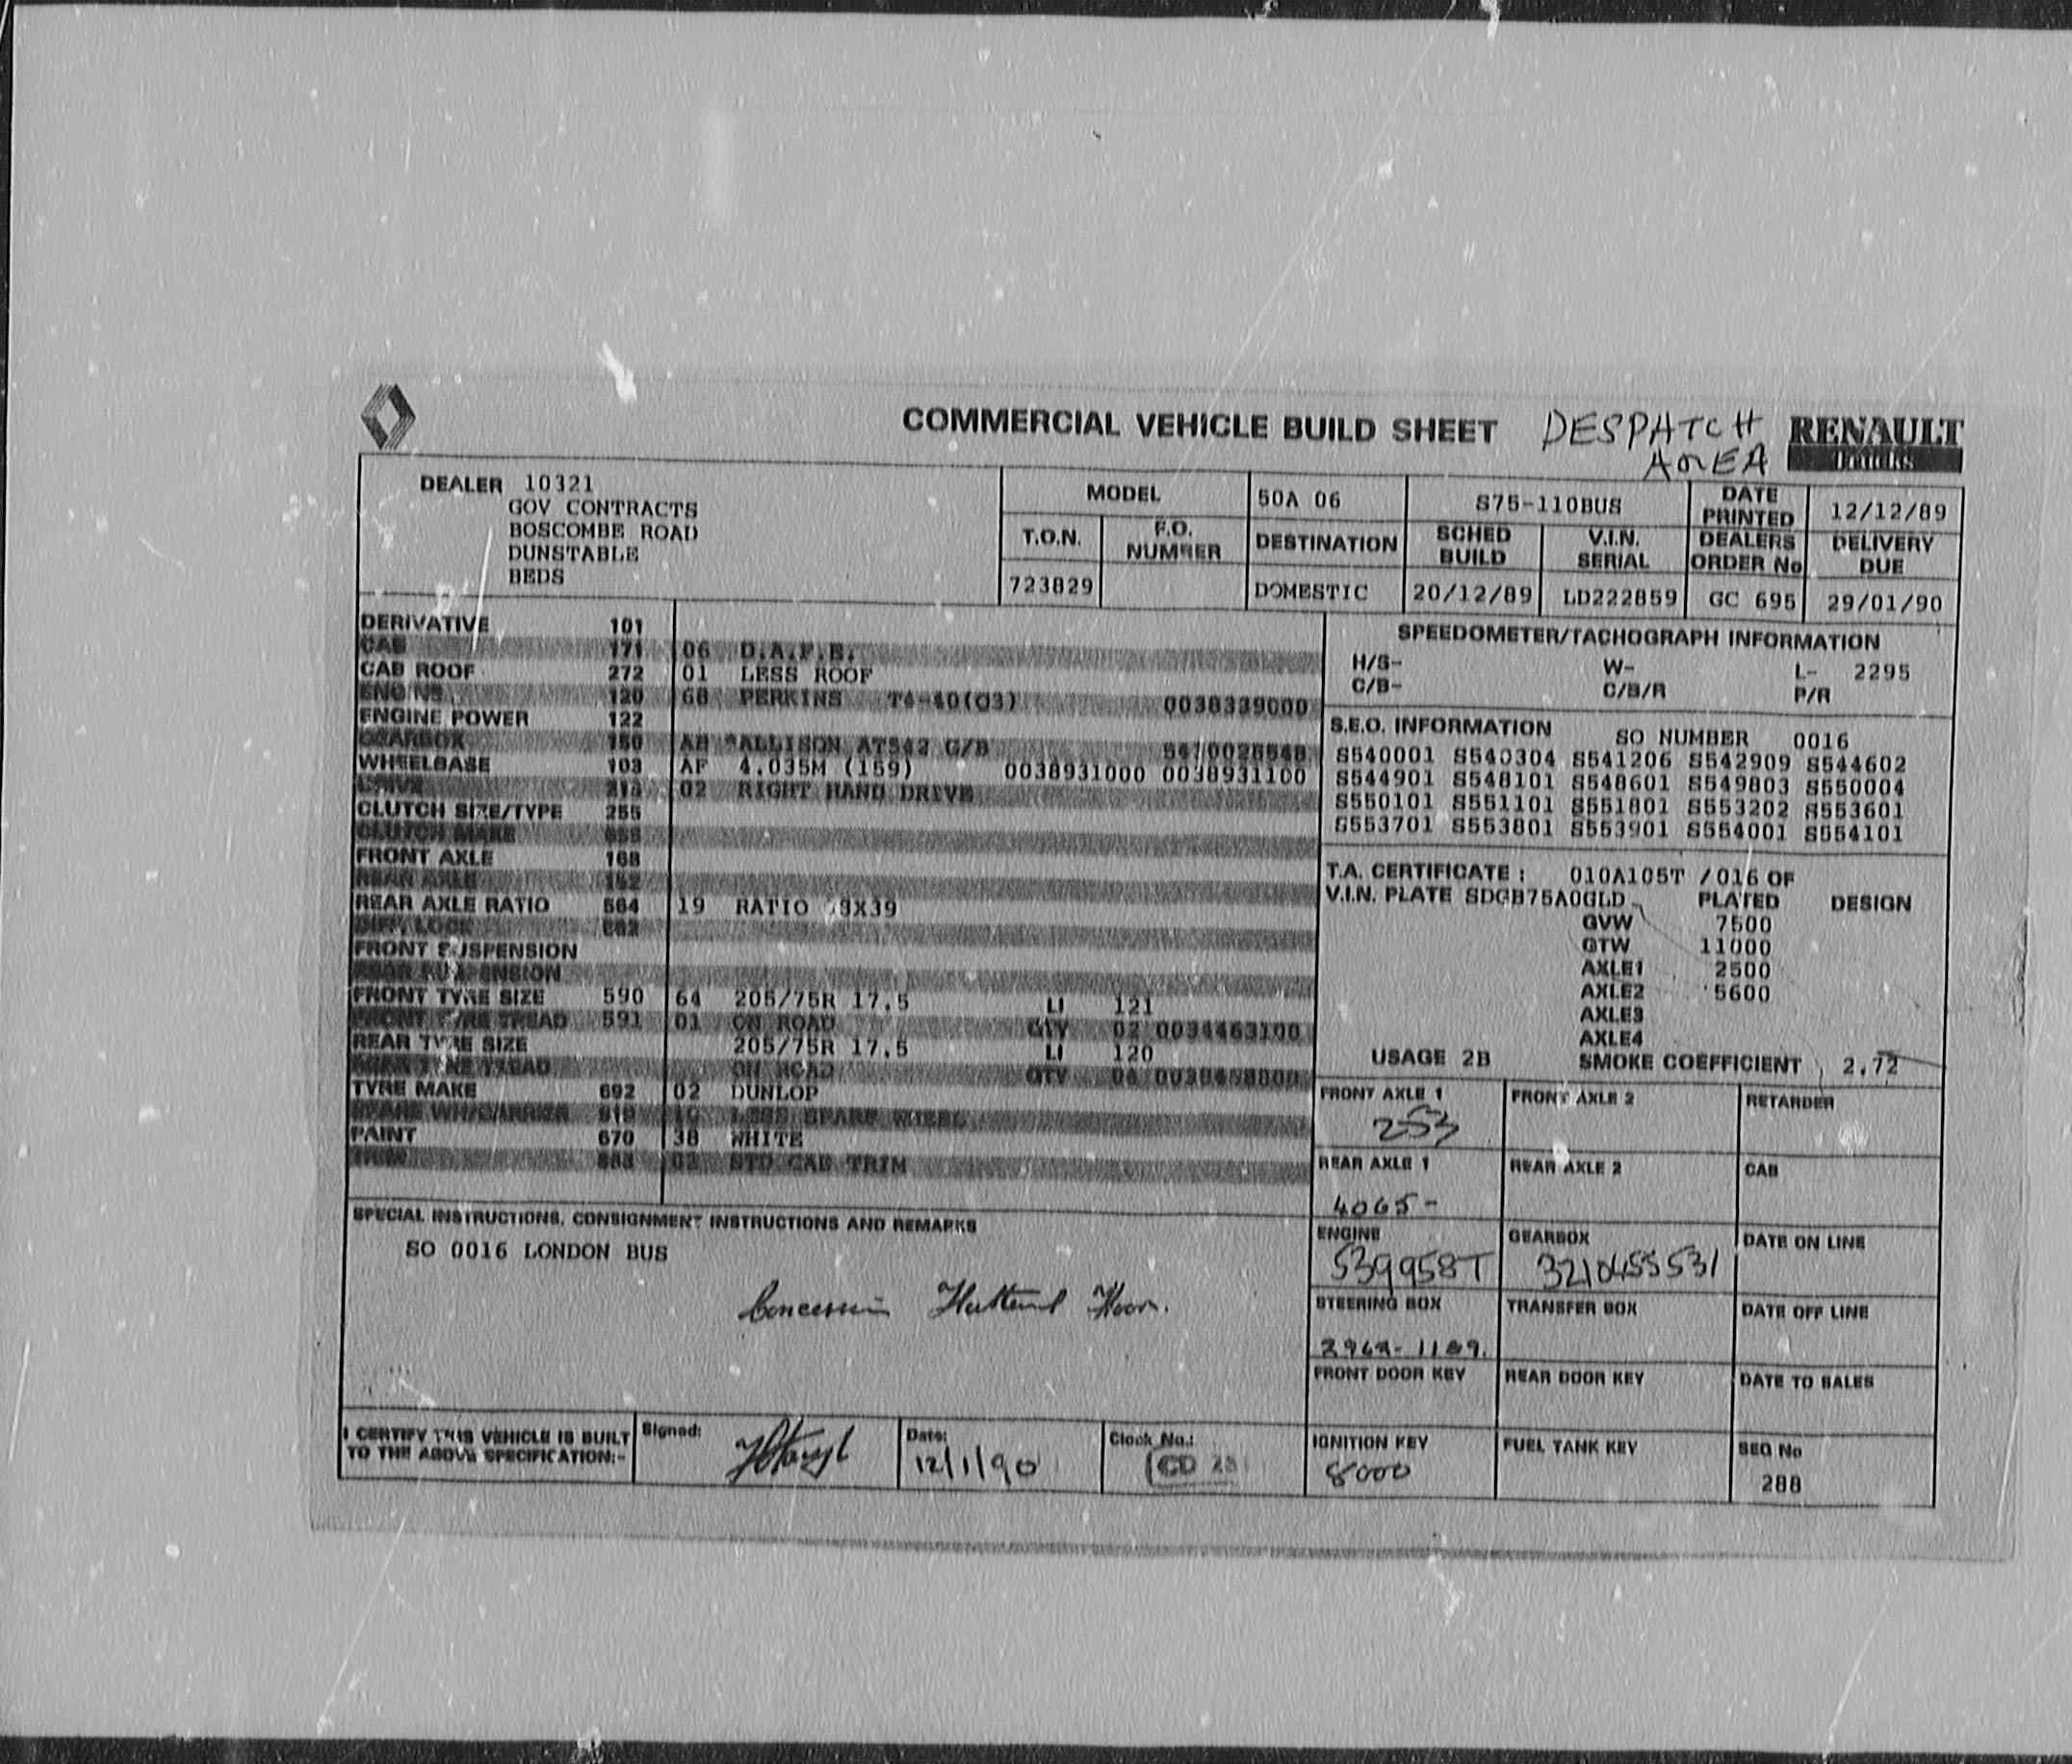 COMMERCIAL VEHICLE BUILD SHEET DESPATCH AREA RENAULT Trucks
DEALER 10321
GOV CONTRACTS
BOSCOMBE ROAD
DUNSTABLE
BEDS
MODEL 50A 06 S75-110BUS DATE PRINTED 12/12/89
T.O.N. F.O. NUMBER DESTINATION SCHED BUILD V.I.N. SERIAL DEALERS ORDER No DELIVERY DUE
723829 DOMESTIC 20/12/89 LD222859 GC 695 29/01/90
DERIVATIVE 101
CAB 171 06 D.A.F.B.
CAB ROOF 272 01 LESS ROOF
ENGINE 120 68 PERKINS T4-40(03) 0038339000
ENGINE POWER 122
GEARBOX 150 *ALLISON AT542 G/B
WHEELBASE 103 AF 4.035M (159) 0038931000 0038931100
02 RIGHT HAND DRIVE
CLUTCH SIZE/TYPE 255
CLUTCH MAKE
FRONT AXLE 168
REAR AXLE 152
REAR AXLE RATIO 564 19 RATIO 3X39
DIFF LOCK
FRONT SUSPENSION
REAR SUSPENSION
FRONT TYRE SIZE 590 64 205/75R 17.5 LI 121
FRONT TYRE TREAD 591 01 ON ROAD QTY 02 0034463100
REAR TYRE SIZE 205/75R 17.5 LI 120
REAR TYRE TREAD ON ROAD QTY 04
TYRE MAKE 692 02 DUNLOP
SPARE WH/CARRIER LESS SPARE WHEEL
PAINT 670 38 WHITE
TRIM STD CAB TRIM
SPEEDOMETER/TACHOGRAPH INFORMATION
H/S- W- L- 2295
C/B- C/B/R P/R
S.E.O. INFORMATION SO NUMBER 0016
S540001 S540304 S541206 S542909 S544602
S544901 S548101 S548601 S549803 S550004
S550101 S551101 S551801 S553202 S553601
S553701 S553801 S553901 S554001 S554101
T.A. CERTIFICATE : 010A105T /016 OF
V.I.N. PLATE SDGB75A0GLD PLATED DESIGN
GVW 7500
GTW 11000
AXLE1 2500
AXLE2 5600
AXLE3
AXLE4
USAGE 2B SMOKE COEFFICIENT 2.72
FRONT AXLE 1 FRONT AXLE 2 RETARDER
253
REAR AXLE 1 REAR AXLE 2 CAB
4065-
ENGINE GEARBOX DATE ON LINE
539958T 3210455531
STEERING BOX TRANSFER BOX DATE OFF LINE
FRONT DOOR KEY REAR DOOR KEY DATE TO SALES
IGNITION KEY FUEL TANK KEY SEQ No
8000 288
SPECIAL INSTRUCTIONS, CONSIGNMENT INSTRUCTIONS AND REMARKS
SO 0016 LONDON BUS
I CERTIFY THIS VEHICLE IS BUILT
TO THE ABOVE SPECIFICATION:-
Signed: Date: 12/1/90 Clock No.: CD